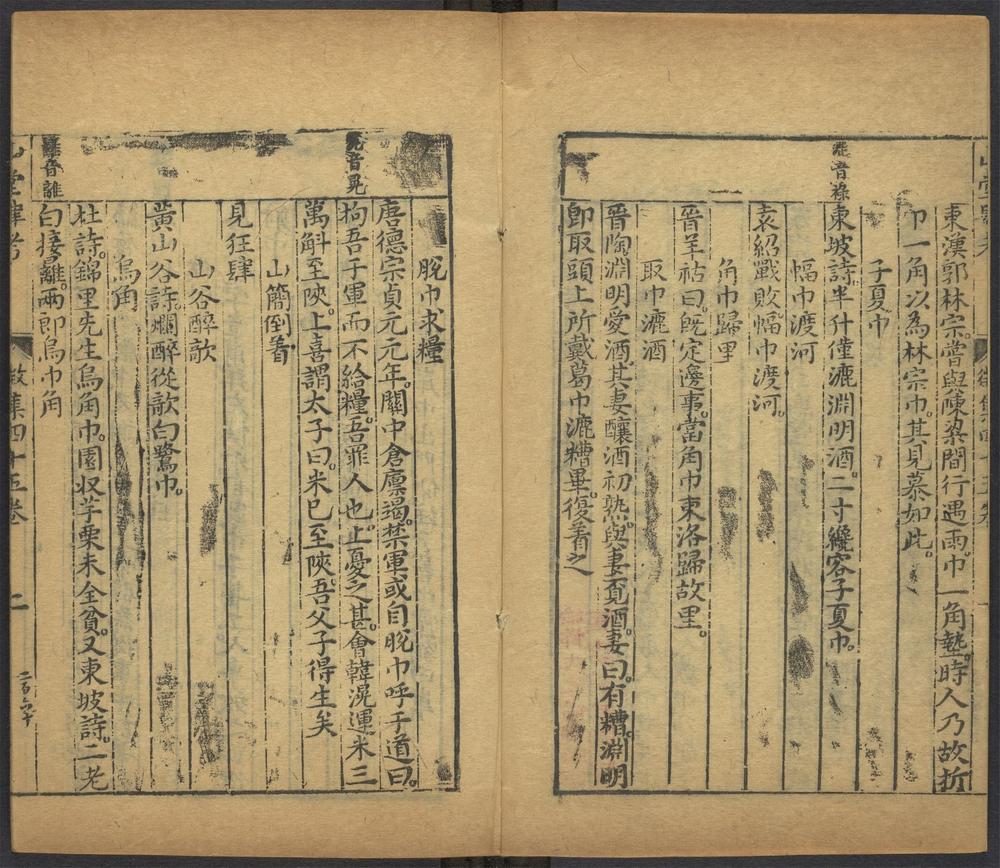 東漢郭林宗嘗與陳梁間行遇雨巾一角墊時人乃故折
巾一角以為林宗巾其見慕如此
子夏巾
音祿
東坡詩半升僅漉淵明酒二寸纔容子夏巾
幅巾渡河
袁紹戰敗幅巾渡河
角巾歸里
晉羊祜曰既定邊事當角巾東洛歸故里
取巾漉酒
晉陶淵明愛酒其妻釀酒初熟與妻覔酒妻曰有糟淵明
即取頭上所戴葛巾漉糟畢復著之
脫巾求糧
唐德宗貞元元年關中倉廩竭禁軍或自脫巾呼于道曰
滉音晃
拘吾于軍而不給糧吾罪人也上憂之甚會韓滉運米三
萬斛至陝上喜謂太子曰米已至陝吾父子得生矣
山簡倒着
見狂肆
山谷醉歌
黃山谷詩爛醉從歌白鷺巾
烏角
杜詩錦里先生烏角巾園收芋栗未全貧又東坡詩二老
音離
白接䍦兩郎烏巾角
山堂肆考
徵集四十五卷
二